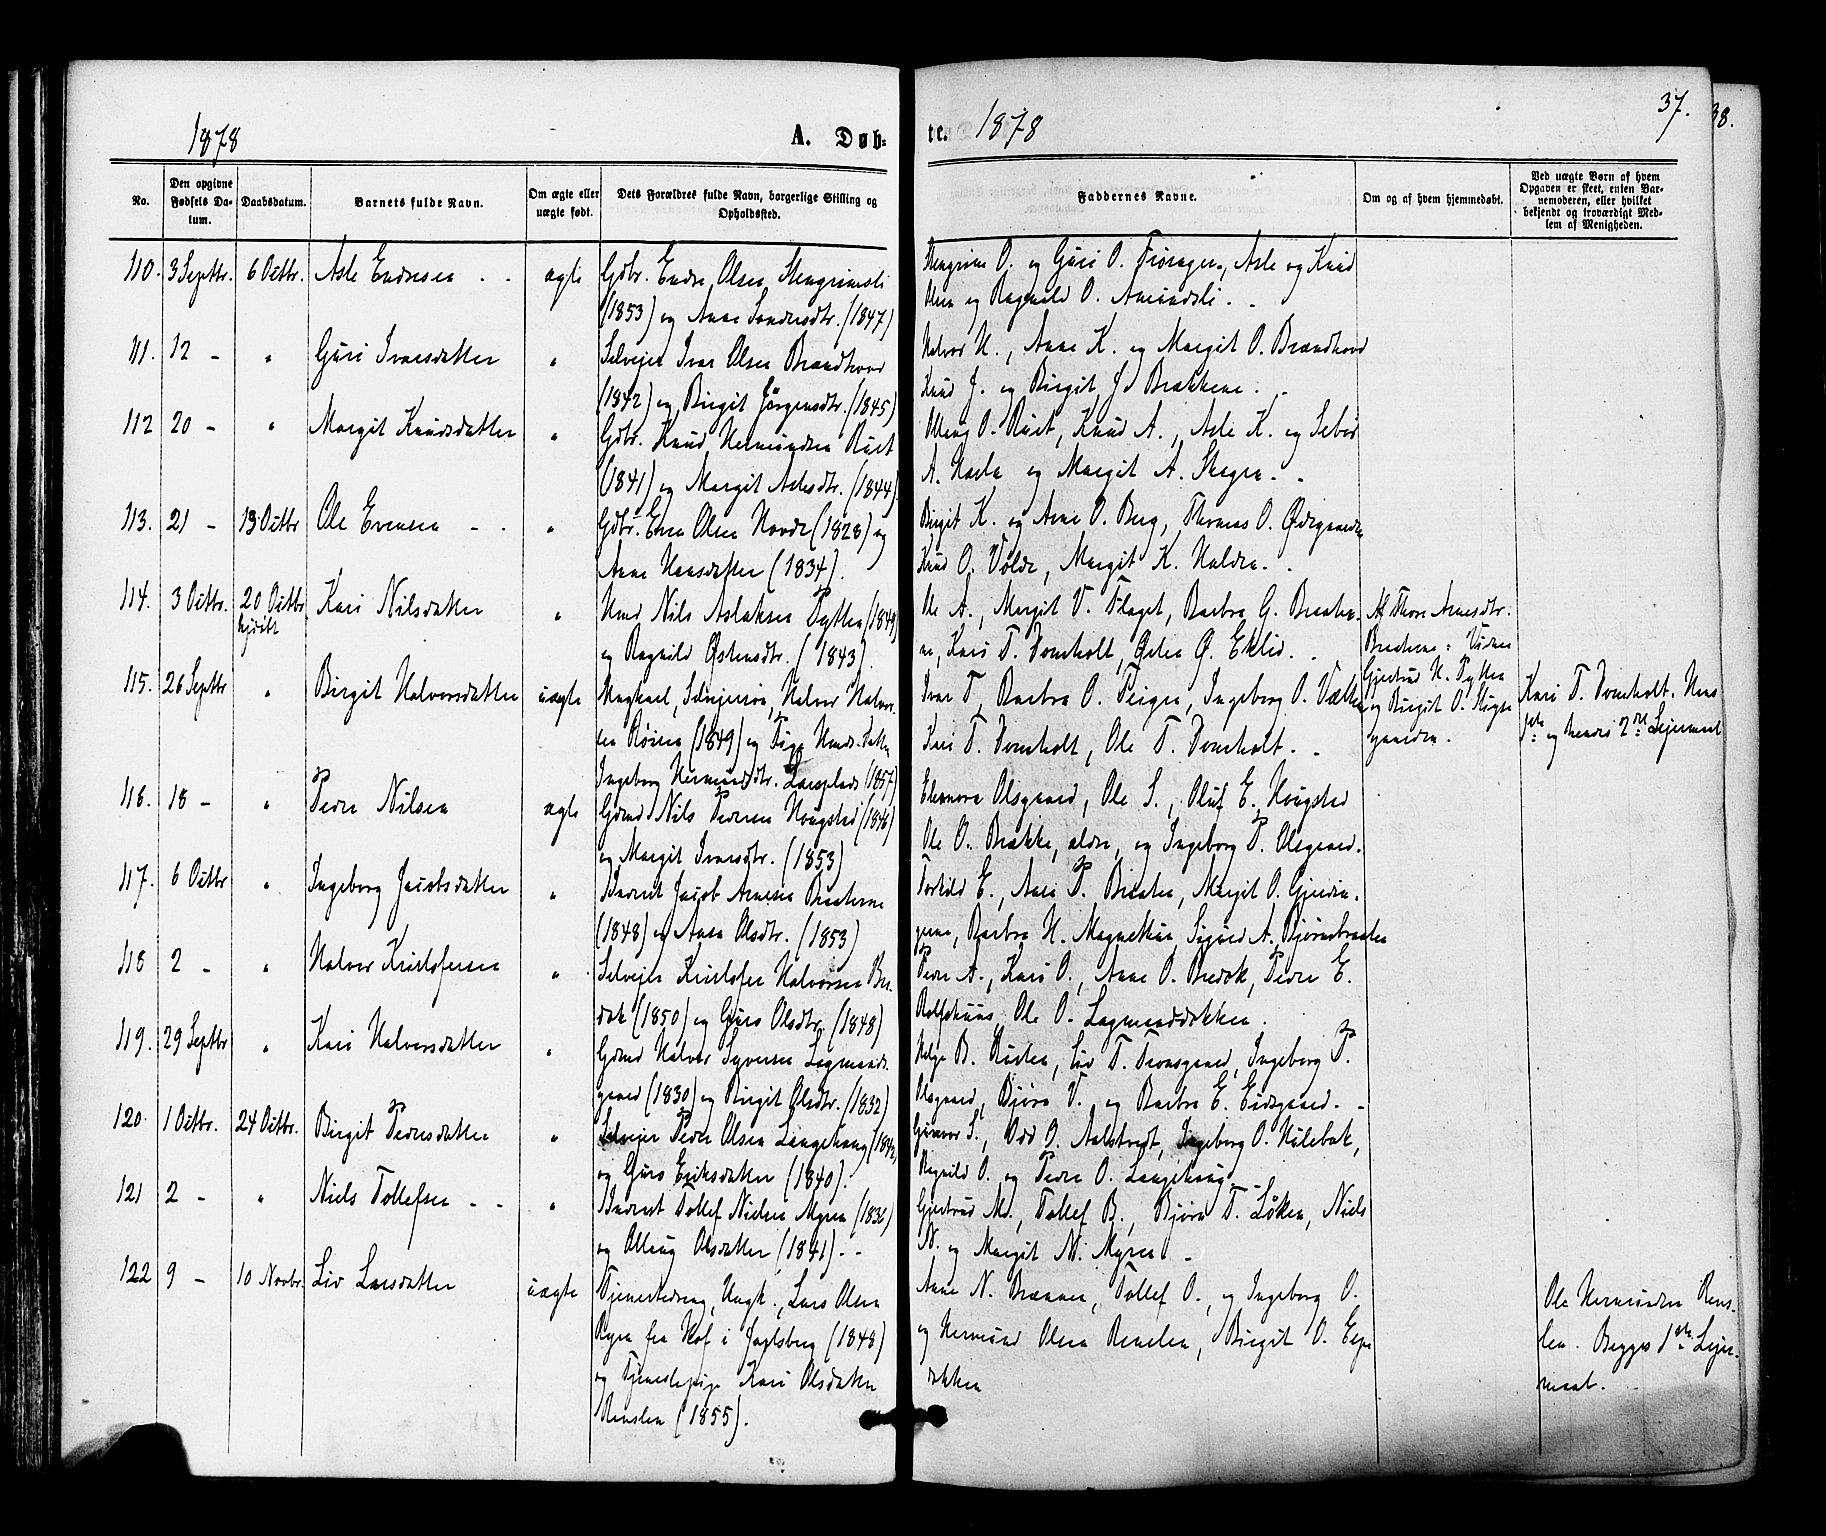 1878
A. Døb-
te.
1878
37.
38.
No.
Den opgivne Fødsels Da-tum.
Daabsdatum.
Barnets fulde Navn.
Om ægte eller uægte født.
Dets Forældres fulde Navn, borgerlige Stilling og Opholdssted.
Faddernes Navne.
Om og af hvem hjemmedøbt.
Ved uægte Børn af hvem Opgaven er skeet, enten Bar-nemoderen, eller hvilket bekjendt og troværdigt Med-lem af Menigheden.
110. 3 Septbr. 6 Octbr. Asle Endresen - - ægte Gdbr. Endre Olsen Stengrimsli
(1853) og Anne Sandersdtr. (1847)
Stengrim O. og Guri O. Asle og Knud
Olsen og Ragnild O. Amundsli. -
111. 12 - " Guri Ivarsdatter " Selveier Ivar Olsen Brandhovd
(1842) og Birgit Jörgensdtr. (1845)
Halvor H., Anne K. og Margit O. Brandhovd
Knud J. og Birgit J. Brækkene. -
112 20 - " Margit Knudsdatter " Gdbr. Knud Hermundsen Rust
(1841) og Margit Aslesdtr. (1844).
O. Rust, Knud A., Asle K. og
A. og Margit A. - -
113. 21 - 13 Octbr Ole Evensen - - " Gdbr. Even Olsen Hovde (1828) og
Anne Hansdatter (1834).
Birgit K. og Arne O. Berg, Thomas O. Ødegaarden
Knud O. Volde, Margit K. Halden. -
114. 3 Octbr. 20 Octbr Kari Nilsdatter " Hmd Nils Aslaksen Pytten (1844)
og Ragnild Østensdtr. (1843).
Ole A., Margit V. Flaget, Barbro G. Braaten-
ne, Kari T. Domholt, Østen Ø. Eklid. -
Af Thore Arnesdtr.
Bræterne: Vidner
Gjertrud N. Pytten
og Birgit O.
gaarden.
115. 26 Septbr " Birgit Halvorsdatter uægte Ungkarl, Selvejersøn, Halvor Halvor-
sen (1849) og Pige Hmds. Datter
Ingeborg Hermundsdtr. (1857)
Ivar T., Barbro O. Teigen, Ingeborg O.
Kari T. Domholt, Ole T. Domholt. -
Kari T. Domholt. Hans
1ste og hendes 2det Leiermaal
116. 18 - " Peder Nilsen ægte Gdmd Nils Pedersen Haugstad (1846)
og Margit Ivarsdtr. (1853)
Eleonora Olsgaard, Ole S., Oluf E. Haugstad
Ole O. Brække, ældre, og Ingeborg P. Olsgaard.
117. 6 Octbr " Ingeborg Jacobsdatter " Inderst Jacob Arnesen Braaterne
(1848) og Anne Olsdtr. (1853)
Torkild E., Anne P. Braaten, Margit O.
Barbro H. Sigurd A. Bjørnebraaten
118 2 - " Halvor Kristofersen " Selveier Kristofer Halvorsen Bre-
dok (1850) og Guro Olsdtr. (1848)
Peder A., Kari O., Anne O. Bredok, Peder E.
Rolfshuus Ole O. Lagmanddokken.
119. 29 Septbr " Kari Halvorsdatter " Gdmd Halvor Syversen Lagmands-
gaard (1830) og Birgit Olsdtr. (1832)
Helge B. Rusten, Liv T. Ingeborg P.
Olsgaard, Bjørn V. og Barbro E. Eidsgaard. -
120. 1 Octbr. 24 Octbr. Birgit Pedersdatter " Selveier Peder Olsen Langehaug (1842)
og Guro Eriksdatter (1840).
Gunvor S., Odd O. Aalstveit, Ingeborg O. Hulebak,
Ragnild O. og Peder O. Langehaug
121 2 - " Niels Tollefsen - - " Inderst Tollef Nielsen Myren (1836)
og Olloug Olsdatter (1841) - -
Gjertrud M., Tollef B., Bjørn T. Løken, Niels
N. og Margit N. Myren. -
122 9 - 10 Novbr. Liv Larsdatter uægte Tjenestedreng, Ungk., Lars Olsen
Ryen fra Hof i Jarlsberg (1848)
og Tjenestepige Kari Olsdatter
Renslen (1855).
Anne N. Tollef O., og Ingeborg O.
og Hermund Olsen Renslen, Birgit O. Espe
dokken
Ole Hermundsen Rens-
len. Begges 1ste Leier-
maal.